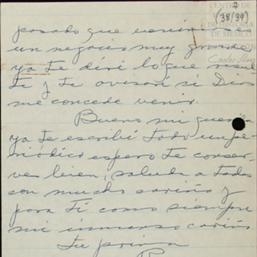 (38/39)
pasado que venir
un negocio muy grande
ya te diré lo que
ti y te avisaré si Dios
me concede venir.
Bueno mi
ya te escribí todo un pe-
riódico espero te conser-
ves bien, saluda a todos
con mucho cariño y
para ti como siempre
mi inmenso cariño
tu prima